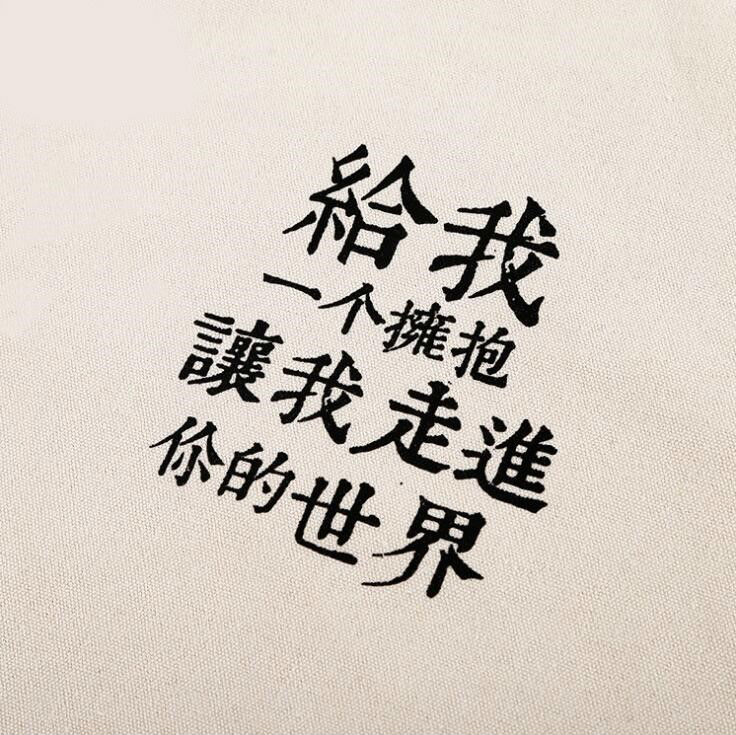 給我
一个擁抱
讓我走進
你的世界